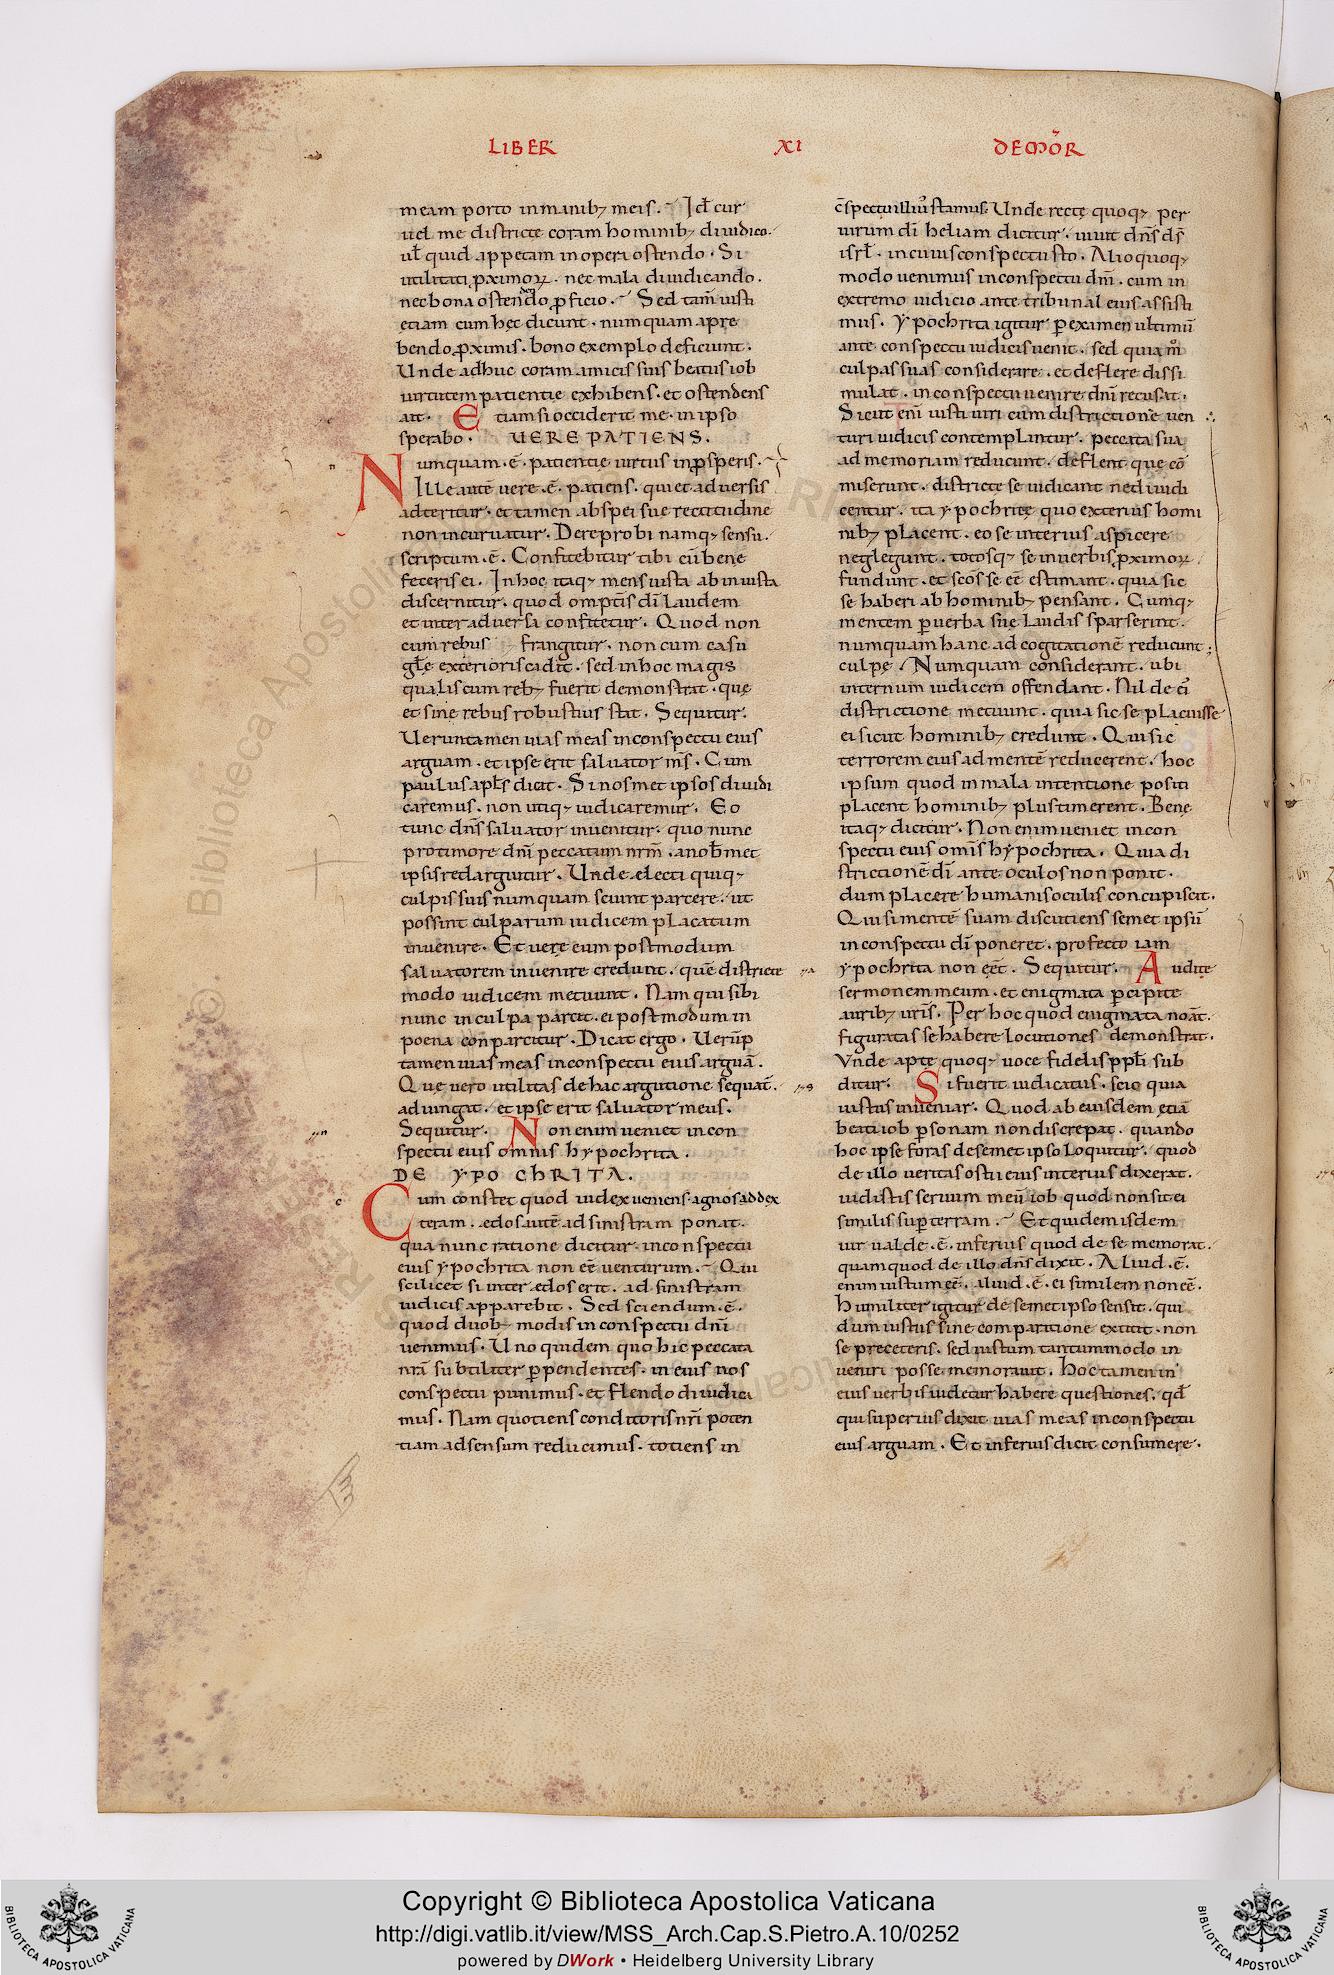 LIBER XI DEMOR̄
meam porto inmanib; meis. Id̄ cur
uel me districte coram hominib; diiudico.
ul̄ quid appetam inoperi ostendo. Si
utilitati ꝓximoꝝ. nec mala diiudicando.
necbona ostendendo ꝓficio. Sed tam̄ iusti
etiam cum hęc dicunt. numquam apre
bendo ꝓximis. bono exemplo deficiunt.
Unde adhuc coram amicis suis beatus iob
uirtutem patientie exhibens. et ostendens
ait. Etiam si occiderit me. in ipso
sperabo. UERE PATIENS.
Numquam. ē. patientie uirtus inꝓsperis.
Ille autē uere. ē. patiens. qui et aduersis
adteritur. et tamen abspei sue rectitudine
non incuruatur. De reprobi namq; sensu.
scriptum. ē. Confitebitur tibi cū bene
feceris ei. In hoc itaq; mens iusta ab iniusta
discernitur. quod omp̄tis dī laudem
et inter aduersa confitetur. Quod non
cum rebus frangitur. non cum casu
gl̄ę exterioris cadit. sed in hoc magis
qualis cum reb; fuerit demonstrat. quę
et sine rebus robustius stat. Sequitur.
Ueruntamen uias meas inconspectu eius
arguam. et ipse erit saluator m̄s. Cum
paulus apl̄s dicat. Si nosmet ipsos diiudi
caremus. non utiq; iudicaremur. Eo
tunc dn̄s saluator inuenitur. quo nunc
pro timore dn̄i peccatum nr̄m. a nob̄ met
ipsis redarguitur. Unde electi quiq;
culpis suis numquam sciunt parcere. ut
possint culparum iudicem placatum
inuenire. Et uere eum postmodum
saluatorem inuenire credunt. quē districte
modo iudicem metuunt. Nam qui sibi
nunc in culpa parcit. ei postmodum in
poena con parcitur. Dicat ergo. Uerūp
tamen uias meas inconspectu eius arguā.
Quę uero utilitas de hac argutione sequat̄.
adiungit. et ipse erit saluator meus.
Sequitur. Non enim ueniet in con
spectu eius omnis hypochrita.
DE YPOCHRITA.
Cum constet quod iudex ueniens. agnos ad dex
teram. edos autē ad sinistram ponat.
qua nunc ratione dicitur. inconspectu
eius ypochrita non eē uenturum. Qui
scilicet si inter edos erit. ad sinistram
iudicis apparebit. Sed sciendum. ē.
quod duob; modis inconspectu dn̄i
uenimus. Uno quidem quo hic peccata
nrā subtiliter ꝑpendentes. in eius nos
conspectu punimus. et flendo diiudica
mus. Nam quotiens conditoris nr̄i poten
tiam ad sensum reducimus. totiens in
c̄spectu illiū stamus. Unde rectę quoq; per
uirum dī heliam dicitur. uiuit dn̄s d̄s
isrl̄. in cuius conspectu sto. Alio quoq;
modo uenimus inconspectu dn̄i. cum in
extremo iudicio ante tribunal eius assisti
mus. Ypochrita igitur ꝑ examen ultimū
ante conspectu iudicis uenit. sed quia m̊
culpas suas considerare. et deflere dissi
mulat. inconspectu uenire dn̄i recusat.
Sicut enī iusti uiri cum districtione uen
turi iudicis contemplantur. peccata sua
ad memoriam reducunt. deflent que cō
miserunt. districte se iudicant ne diiudi
centur. ita ypochritę quo exterius homi
nib; placent. eo se interius aspicere
neglegunt. totosq; se in uerbis ꝓximoꝝ
fundunt. et sc̄os se eē estimant. quia sic
se haberi ab hominib; pensant. Cumq;
mentem ꝑ uerba sue laudis sparserint.
numquam hanc ad cogitationē reducunt
culpę. Numquam considerant. ubi
internum iudicem offendant. Nil de ei᷒
districtione metuunt. quia sic se placuisse
ei sicut hominib; credunt. Qui si e
terrorem eius ad mentē reducerent. hoc
ipsum quod in mala intentione positi
placent hominib; plus timerent. Benę
itaq; dicitur. Non enim ueniet in con
spectu eius omīs hypochrita. Quia di
strictionē dī ante oculos non ponit.
dum placere humanis oculis concupiscit.
Qui si mentē suam discutiens semet ipsū
inconspectu dī poneret. profecto iam
ypochrita non eēt. Sequitur. Audite
sermonem meum. et enigmata ꝑcipite
aurib; ur̄is. Per hoc quod enigmata noāt.
figuratas se habere locutiones demonstrat.
Vnde aptę quoq; uoce fidelis ppl̄i sub
ditur. Si fuerit iudicatus. scio quia
iustus inueniar. Quod ab eiusdem etiā
beati iob ꝑsonam non discrepat. quando
hoc ipse foras de semet ipso loquitur. quod
de illo ueritas osti eius interius dixerat.
uidistis seruum meū iob quod non sit ei
similis suꝑ terram. Et quidem isdem
uir ualde. ē. inferius quod de se memorat.
quam quod de illo dn̄s dixit. Aliud. ē.
enim iustum eē. aliud. ē. ei similem non eē.
Humiliter igitur de semet ipso sensit. qui
dum iustus sine comparatione extitit. non
se pre ceteris. sed iustum tantummodo in
ueniri posse memorauit. Hoc tamen in
eius uerbis uidetur habere questiones. qđ
qui superius dixit uias meas inconspectu
eius arguam. Et inferius dicit consumere.
Copyright © Biblioteca Apostolica Vaticana
http://digi.vatlib.it/view/MSS_Arch.Cap.S.Pietro.A.10/0252
powered by DWork • Heidelberg University Library
BIBLIOTECA APOSTOLICA VATICANA
BIBLIOTECA APOSTOLICA VATICANA